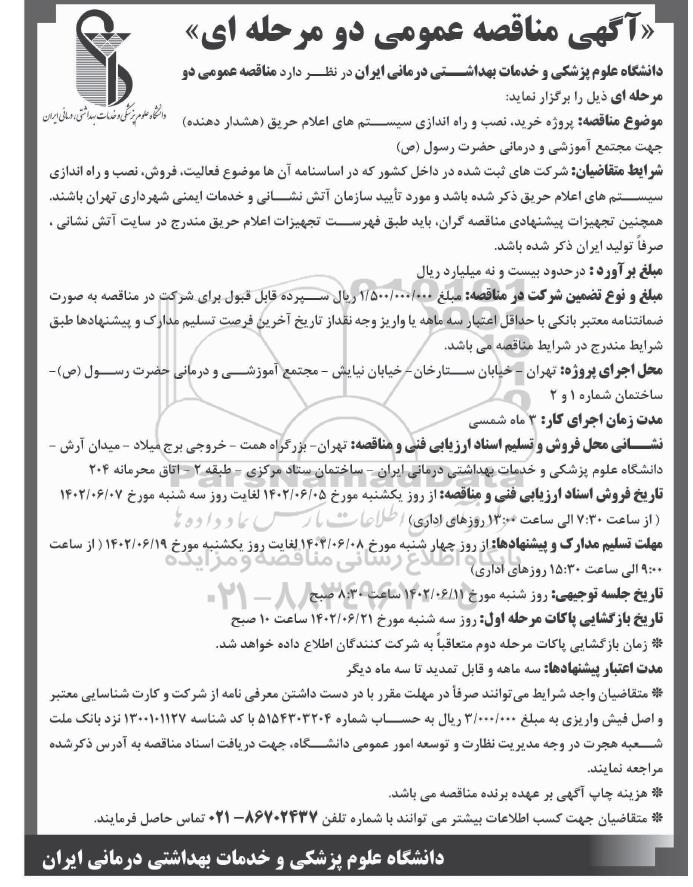 «آگهی مناقصه عمومی دو مرحله ای»
دانشگاه علوم پزشکی و خدمات بهداشتی، درمانی ایران
دانشگاه علوم پزشکی و خدمات بهداشتی درمانی ایران در نظر دارد مناقصه عمومی دو
مرحله ای ذیل را برگزار نماید:
موضوع مناقصه: پروژه خرید، نصب و راه اندازی سیستم های اعلام حریق (هشدار دهنده)
جهت مجتمع آموزشی و درمانی حضرت رسول (ص)
شرایط متقاضیان: شرکت های ثبت شده در داخل کشور که در اساسنامه آن ها موضوع فعالیت، فروش، نصب و راه اندازی
سیستم های اعلام حریق ذکر شده باشد و مورد تأیید سازمان آتش نشانی و خدمات ایمنی شهرداری تهران باشند.
همچنین تجهیزات پیشنهادی مناقصه گران، باید طبق فهرست تجهیزات اعلام حریق مندرج در سایت آتش نشانی ،
صرفاً تولید ایران ذکر شده باشد.
مبلغ برآورد : درحدود بیست و نه میلیارد ریال
مبلغ و نوع تضمین شرکت در مناقصه: مبلغ ۱/۵۰۰/۰۰۰/۰۰۰ ریال سپرده قابل قبول برای شرکت در مناقصه به صورت
ضمانتنامه معتبر بانکی با حداقل اعتبار سه ماهه یا واریز وجه نقداز تاریخ آخرین فرصت تسلیم مدارک و پیشنهادها طبق
شرایط مندرج در شرایط مناقصه می باشد.
محل اجرای پروژه: تهران - خیابان ستارخان- خیابان نیایش - مجتمع آموزشی و درمانی حضرت رسول (ص)-
ساختمان شماره ۱ و ۲
مدت زمان اجرای کار: ۳ ماه شمسی
نشانی محل فروش و تسلیم اسناد ارزیابی فنی و مناقصه: تهران- بزرگراه همت - خروجی برج میلاد - میدان آرش -
دانشگاه علوم پزشکی و خدمات بهداشتی درمانی ایران - ساختمان ستاد مرکزی - طبقه ۲ - اتاق محرمانه ۲۰۴
تاریخ فروش اسناد ارزیابی فنی و مناقصه: از روز یکشنبه مورخ ۱۴۰۲/۰۶/۰۵ لغایت روز سه شنبه مورخ ۱۴۰۲/۰۶/۰۷
( از ساعت ۷:۳۰ الی ساعت ۱۳:۰۰ روزهای اداری)
مهلت تسلیم مدارک و پیشنهادها: از روز چهار شنبه مورخ ۱۴۰۲/۰۶/۰۸ لغایت روز یکشنبه مورخ ۱۴۰۲/۰۶/۱۹ ( از ساعت
۹:۰۰ الی ساعت ۱۵:۳۰ روزهای اداری)
تاریخ جلسه توجیهی: روز شنبه مورخ ۱۴۰۲/۰۶/۱۱ ساعت ۸:۳۰ صبح
تاریخ بازگشایی پاکات مرحله اول: روز سه شنبه مورخ ۱۴۰۲/۰۶/۲۱ ساعت ۱۰ صبح
* زمان بازگشایی پاکات مرحله دوم متعاقباً به شرکت کنندگان اطلاع داده خواهد شد.
مدت اعتبار پیشنهادها: سه ماهه و قابل تمدید تا سه ماه دیگر
* متقاضیان واجد شرایط می‌توانند صرفاً در مهلت مقرر با در دست داشتن معرفی نامه از شرکت و کارت شناسایی معتبر
و اصل فیش واریزی به مبلغ ۳/۰۰۰/۰۰۰ ریال به حساب شماره ۵۱۵۴۳۰۳۲۰۴ با کد شناسه ۱۳۰۰۱۰۱۱۲۷ نزد بانک ملت
شعبه هجرت در وجه مدیریت نظارت و توسعه امور عمومی دانشگاه، جهت دریافت اسناد مناقصه به آدرس ذکرشده
مراجعه نمایند.
* هزینه چاپ آگهی بر عهده برنده مناقصه می باشد.
* متقاضیان جهت کسب اطلاعات بیشتر می توانند با شماره تلفن ۸۶۷۰۲۴۳۷-۰۲۱ تماس حاصل فرمایند.
دانشگاه علوم پزشکی و خدمات بهداشتی درمانی ایران
ParsNamadData
پایگاه اطلاع رسانی مناقصه و مزایده
۰۲۱-۸۸۳۴۹۶۷۰-۵